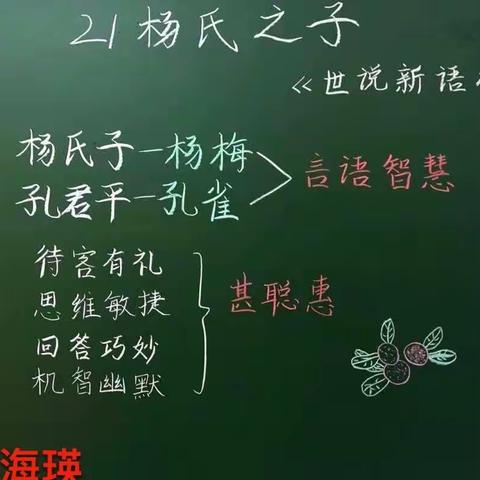 21 杨氏之子
《世说新语
杨氏子—杨梅
孔君平—孔雀
言语智慧
待客有礼
思维敏捷
回答巧妙
机智幽默
甚聪惠
海瑛